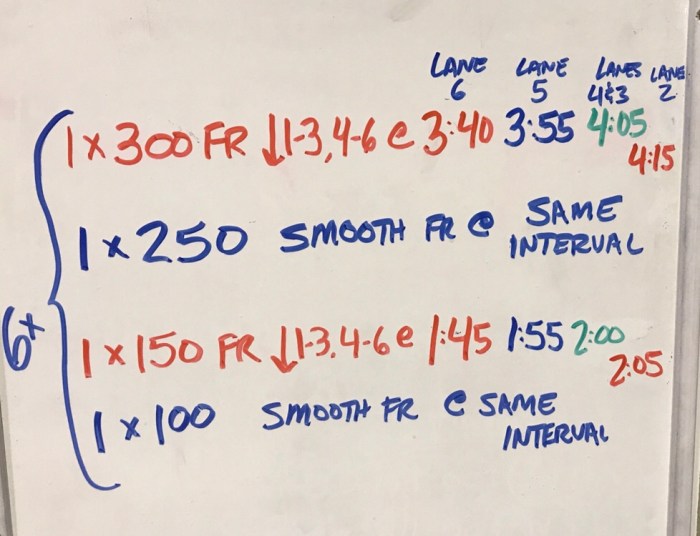 LANE LANE LANES LANE
6 5 4&3 2
1 x 300 FR ↓1-3, 4-6 @ 3:40 3:55 4:05
4:15
1 x 250 SMOOTH FR @ SAME
INTERVAL
6x
1 x 150 FR ↓1-3, 4-6 @ 1:45 1:55 2:00
2:05
1 x 100 SMOOTH FR @ SAME
INTERVAL